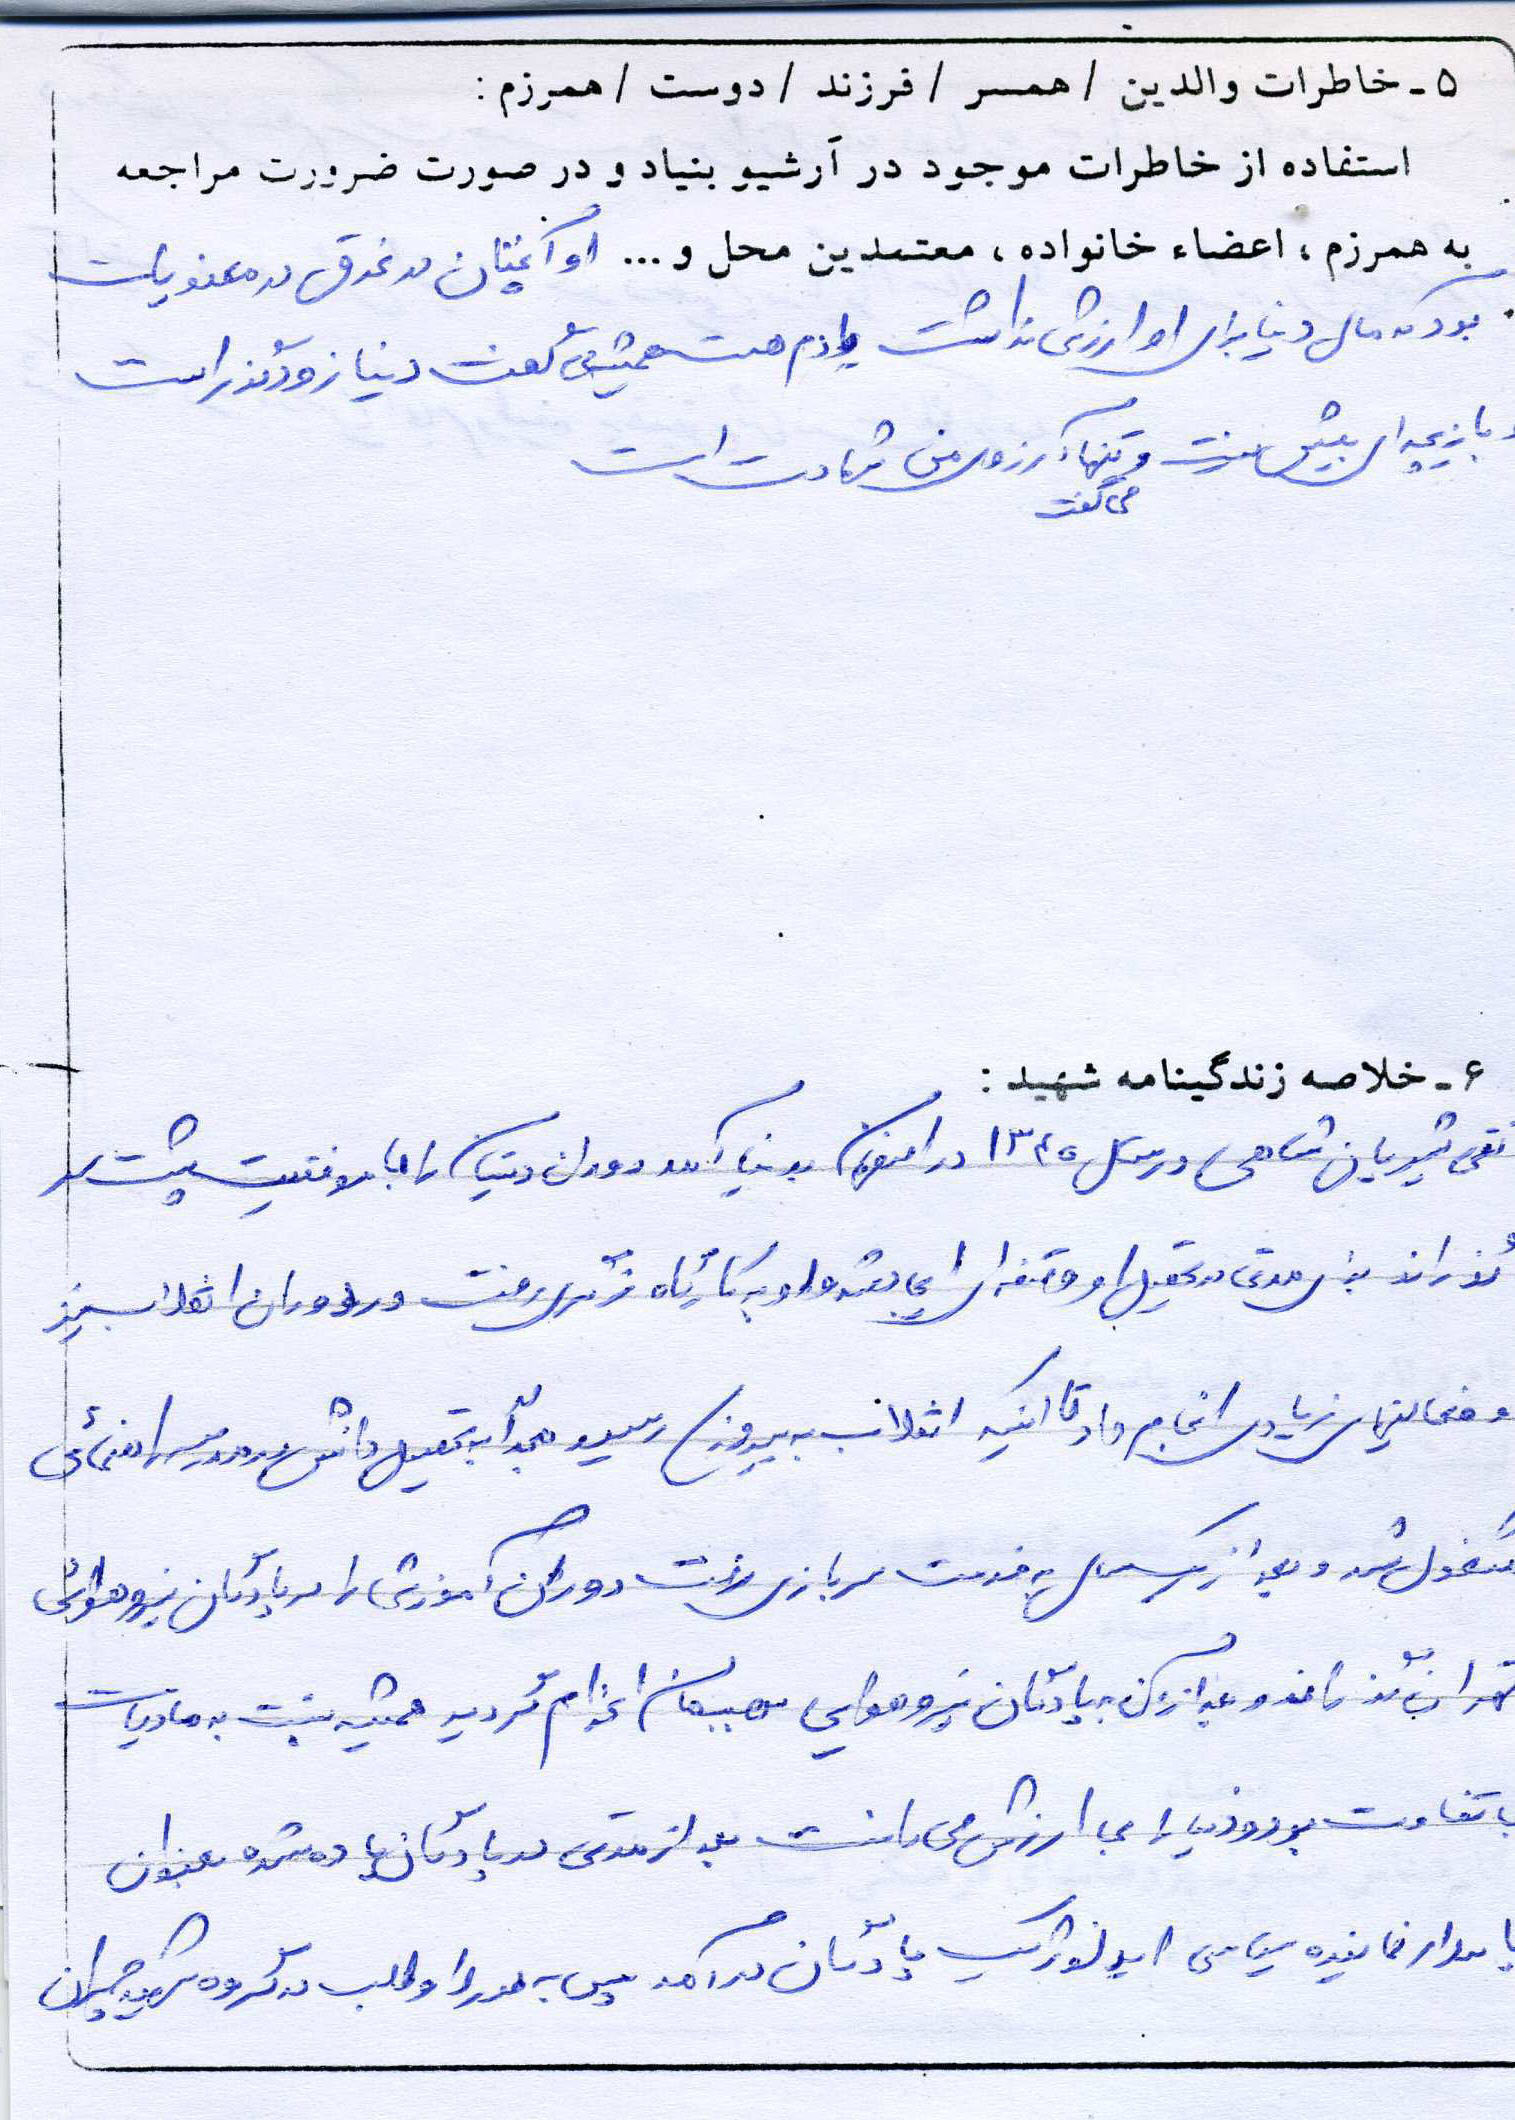 ۵ - خاطرات والدین / همسر / فرزند / دوست / همرزم :
استفاده از خاطرات موجود در آرشیو بنیاد و در صورت ضرورت مراجعه
به همرزم ، اعضاء خانواده ، معتمدین محل و ... او آنچنان در غرق در معنویات
بود که مال دنیا برای او ارزشی نداشت یادم هست همیشه می گفت دنیا زودگذر است
و بازیچه ای بیش نیست و تنها آرزوی من شهادت است
می گفت
۶ - خلاصه زندگینامه شهید :
تقی شیریان شاهی در سال ۱۳۴۵ در اصفهان بدنیا آمد دوران دبستان را با موفقیت پشت سر
گذراند برای مدتی در تحصیل او وقفه ای ایجاد و به کارگاه رفت در دوران انقلاب نیز
و فعالیتهای زیادی انجام داد تا اینکه انقلاب به پیروزی رسید و مجدداً به تحصیل دانش در مدرسه راهنمائی
مشغول شد و بعد از یکسال به خدمت سربازی رفت دوران آموزشی را در پادگان نیرو هوائی
تهران گذراند و بعد از آن به پادگان نیرو هوایی اعزام گردید همیشه نسبت به مادیات
بی تفاوت بود و دنیا را بی ارزش می دانست بعد از مدتی در پادگان یاد شده بعنوان
پاسدار نماینده سیاسی ایدئولوژیک پادگان درآمد پس به طور داوطلب در گروه شهید چمران